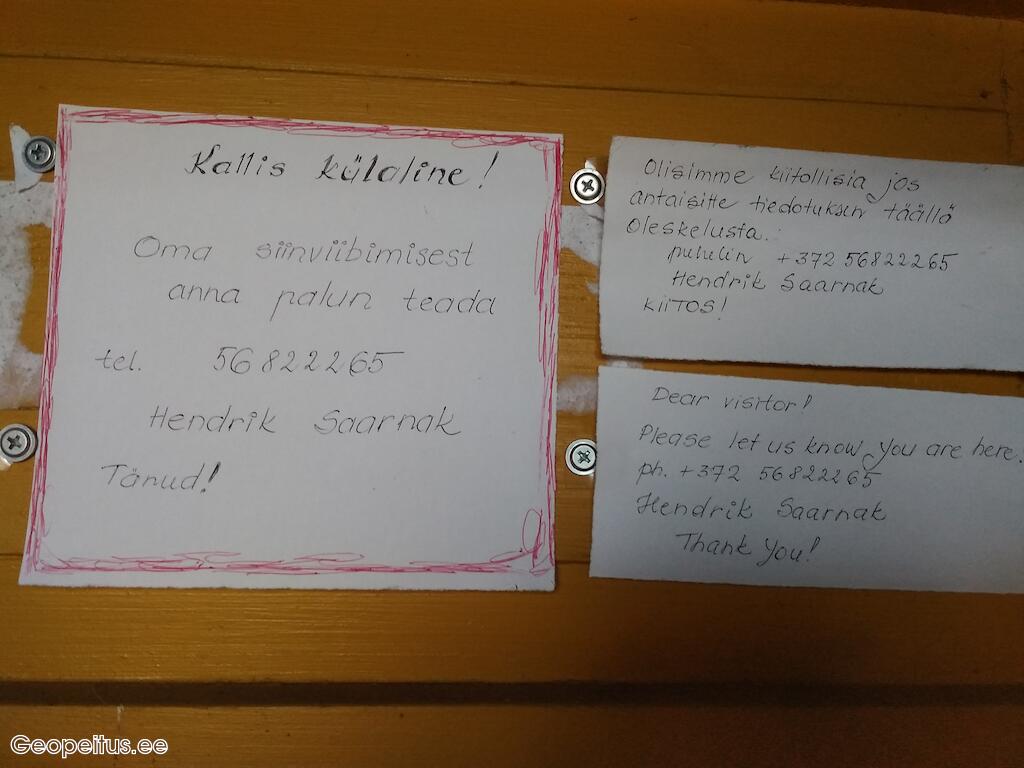 Kallis külaline!
Oma siinviibimisest
anna palun teada
tel. 56822265
Hendrik Saarnak
Tänud!
Olisimme kiitollisia jos
antaisitte tiedotuksen täällä
oleskelusta.
puhelin +372 56822265
Hendrik Saarnak
KIITOS!
Dear visitor!
Please let us know you are here.
ph. +372 56822265
Hendrik Saarnak
Thank you!
Geopeitus.ee